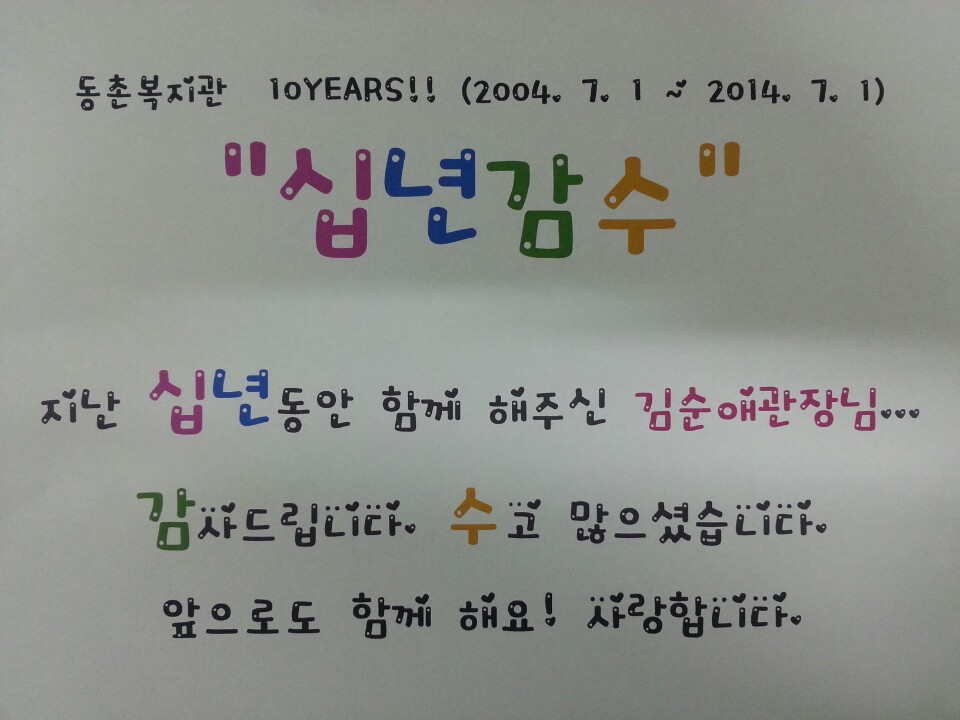 동촌복지관 10YEARS!! (2004. 7. 1 ~ 2014. 7. 1)
"십년감수"
지난 십년동안 함께 해주신 김순애관장님...
감사드립니다. 수고 많으셨습니다.
앞으로도 함께 해요! 사랑합니다.